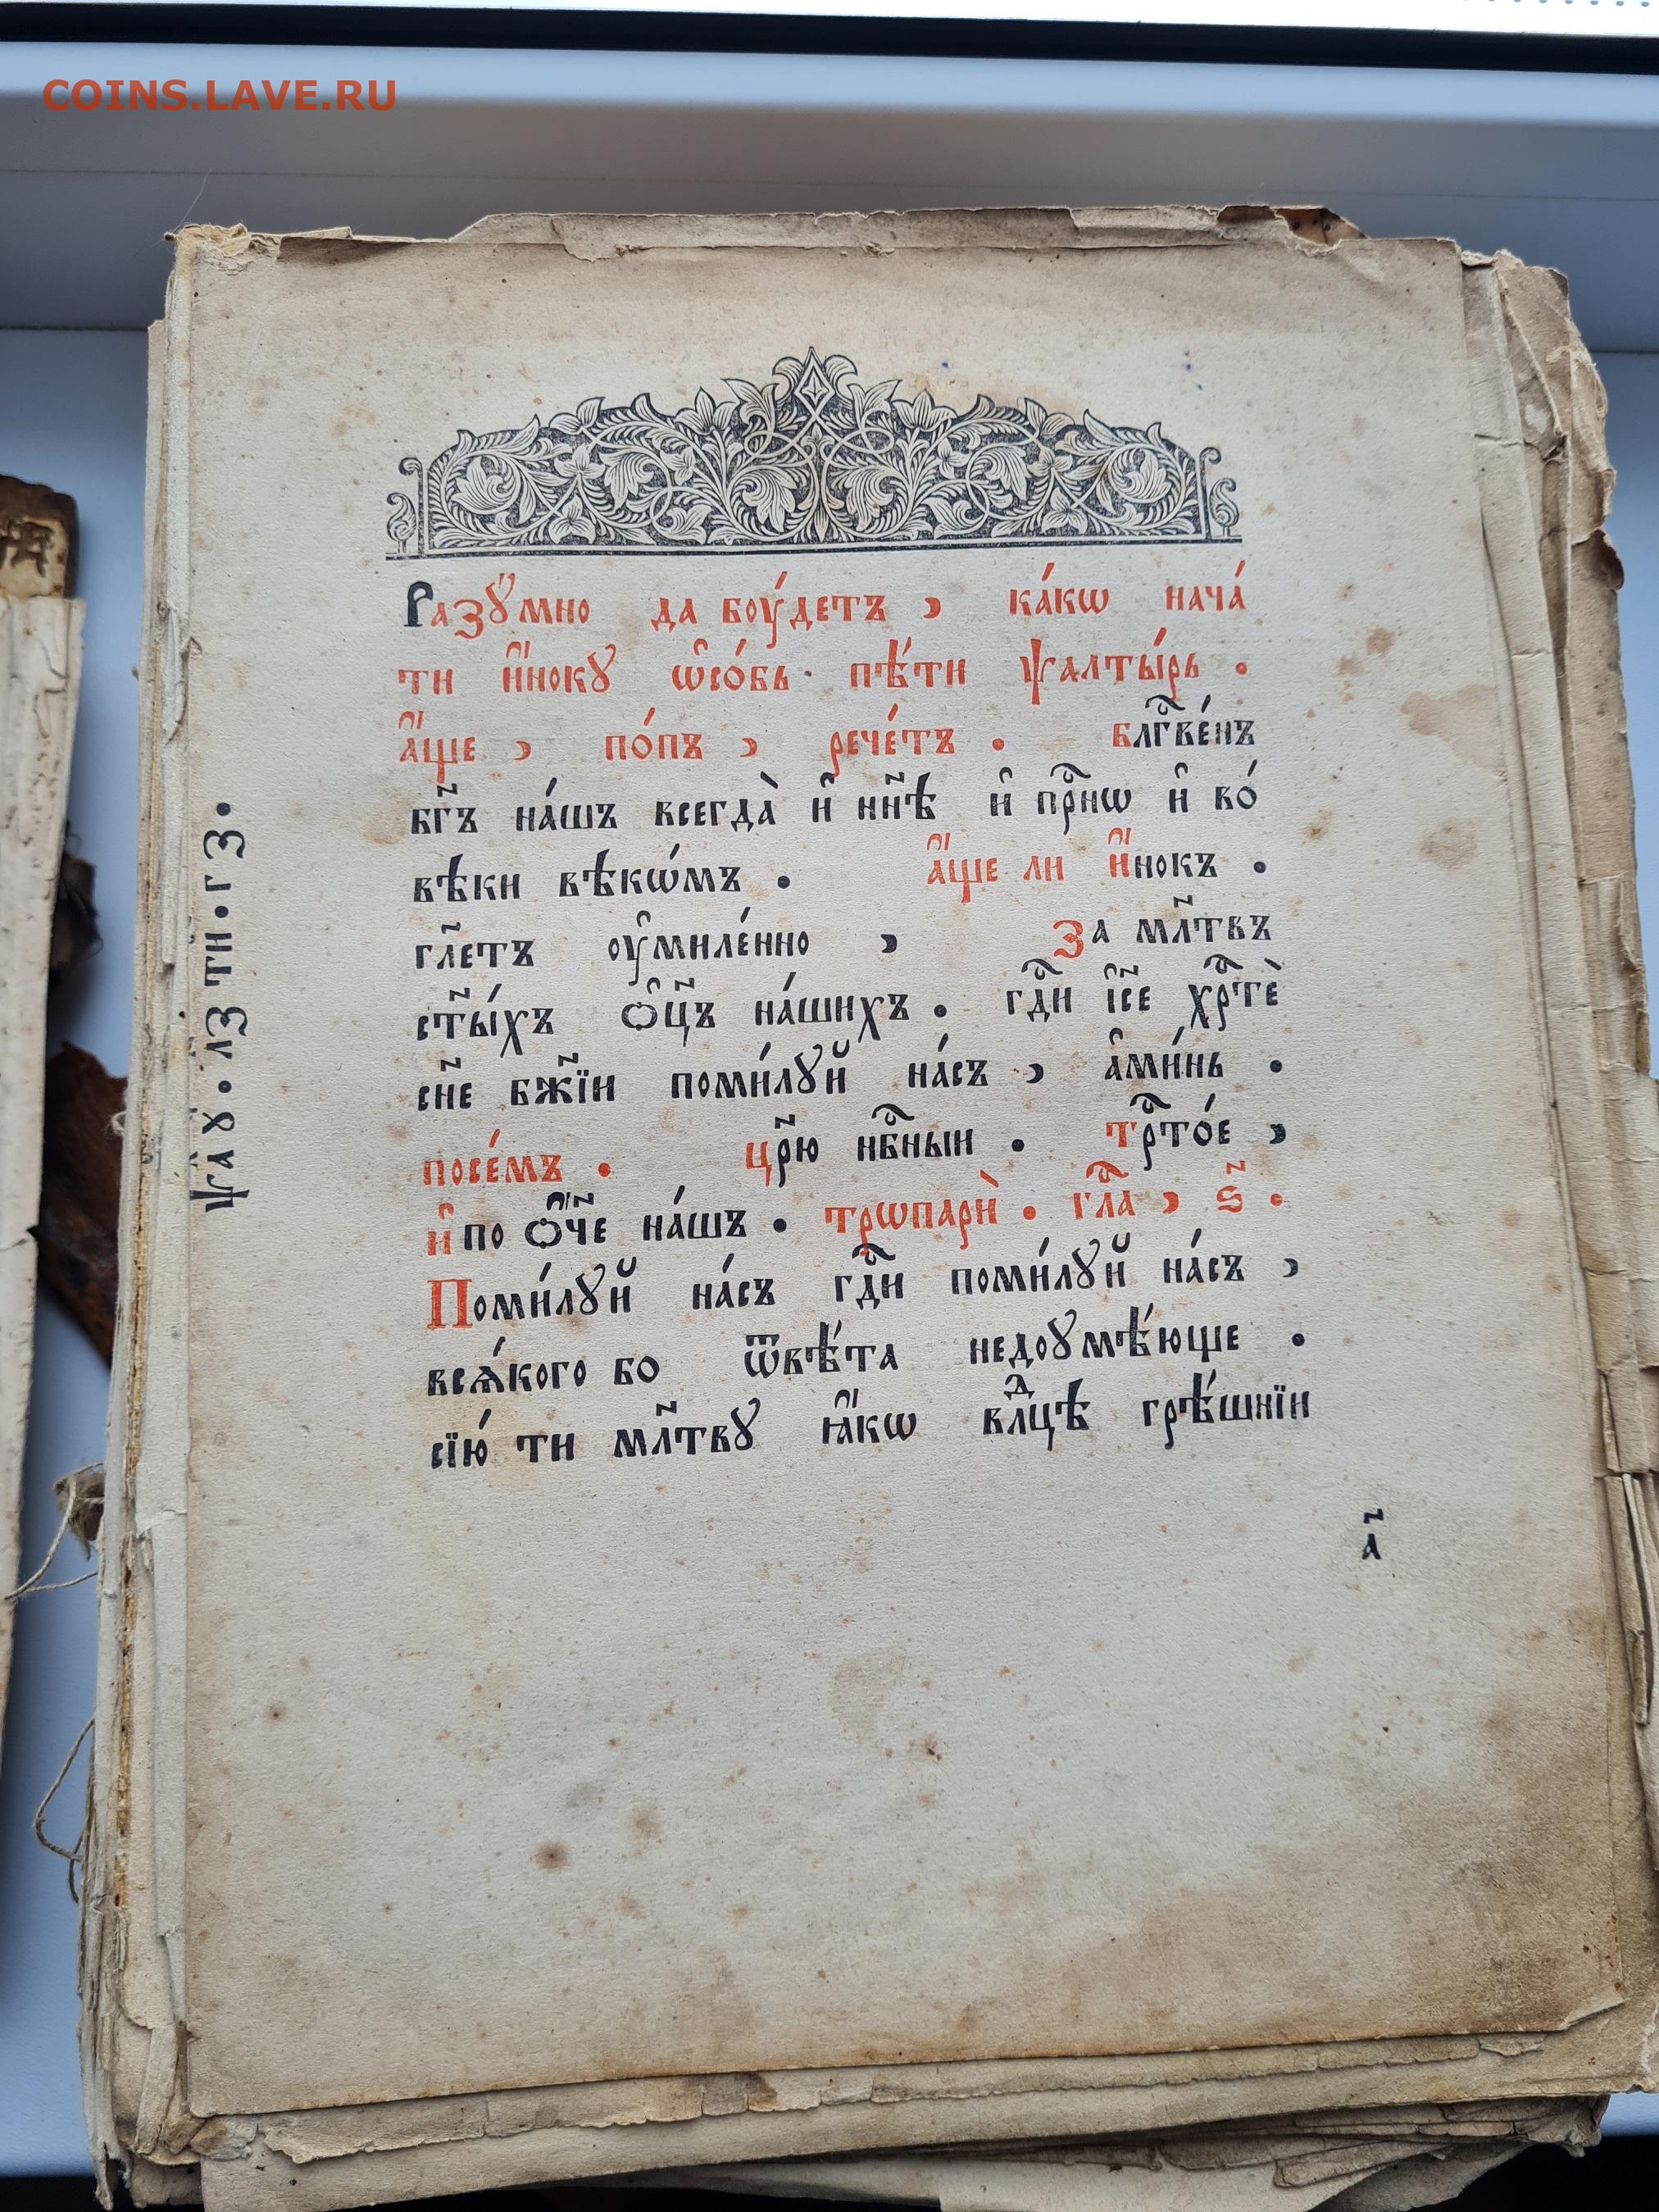 COINS.LAVE.RU
Разꙋ́мно да боу́детъ , ка́кѡ нача́
ти и҆́нокꙋ ѡ҆со́бь· пѣ́ти ѱалты́рь .
а҆́ще , по́пъ , рече́тъ . блгⷭ҇ве́нъ
бг҃ъ на́шъ всегда̀ и҆ нн҃ѣ и҆ прⷭ҇нѡ и҆ во́
вѣки вѣкѡ́мъ . а҆́ще ли и҆́нокъ .
гл҃етъ оу҆миле́нно , За мл҃твъ
ст҃ы́хъ ѻ҆ц҃ъ на́шихъ . гдⷭ҇и і҆с҃е хрⷭ҇тѐ
сн҃е бж҃їи поми́лꙋй на́съ , а҆ми́нь .
посе́мъ . цр҃ю нбⷭ҇ныи . трⷭ҇то́е ,
и҆ по ѻ҆́ч҃е на́шъ . трѡпарѝ . глⷭ҇а , ѕ҃ .
Поми́лꙋй на́съ гдⷭ҇и поми́лꙋй на́съ ,
всѧ́кого бо ѿвѣ́та недоꙋмѣ́юще .
сїю́ ти мл҃твꙋ ꙗ҆́кѡ влⷣцѣ грѣ́шнїи
а҃